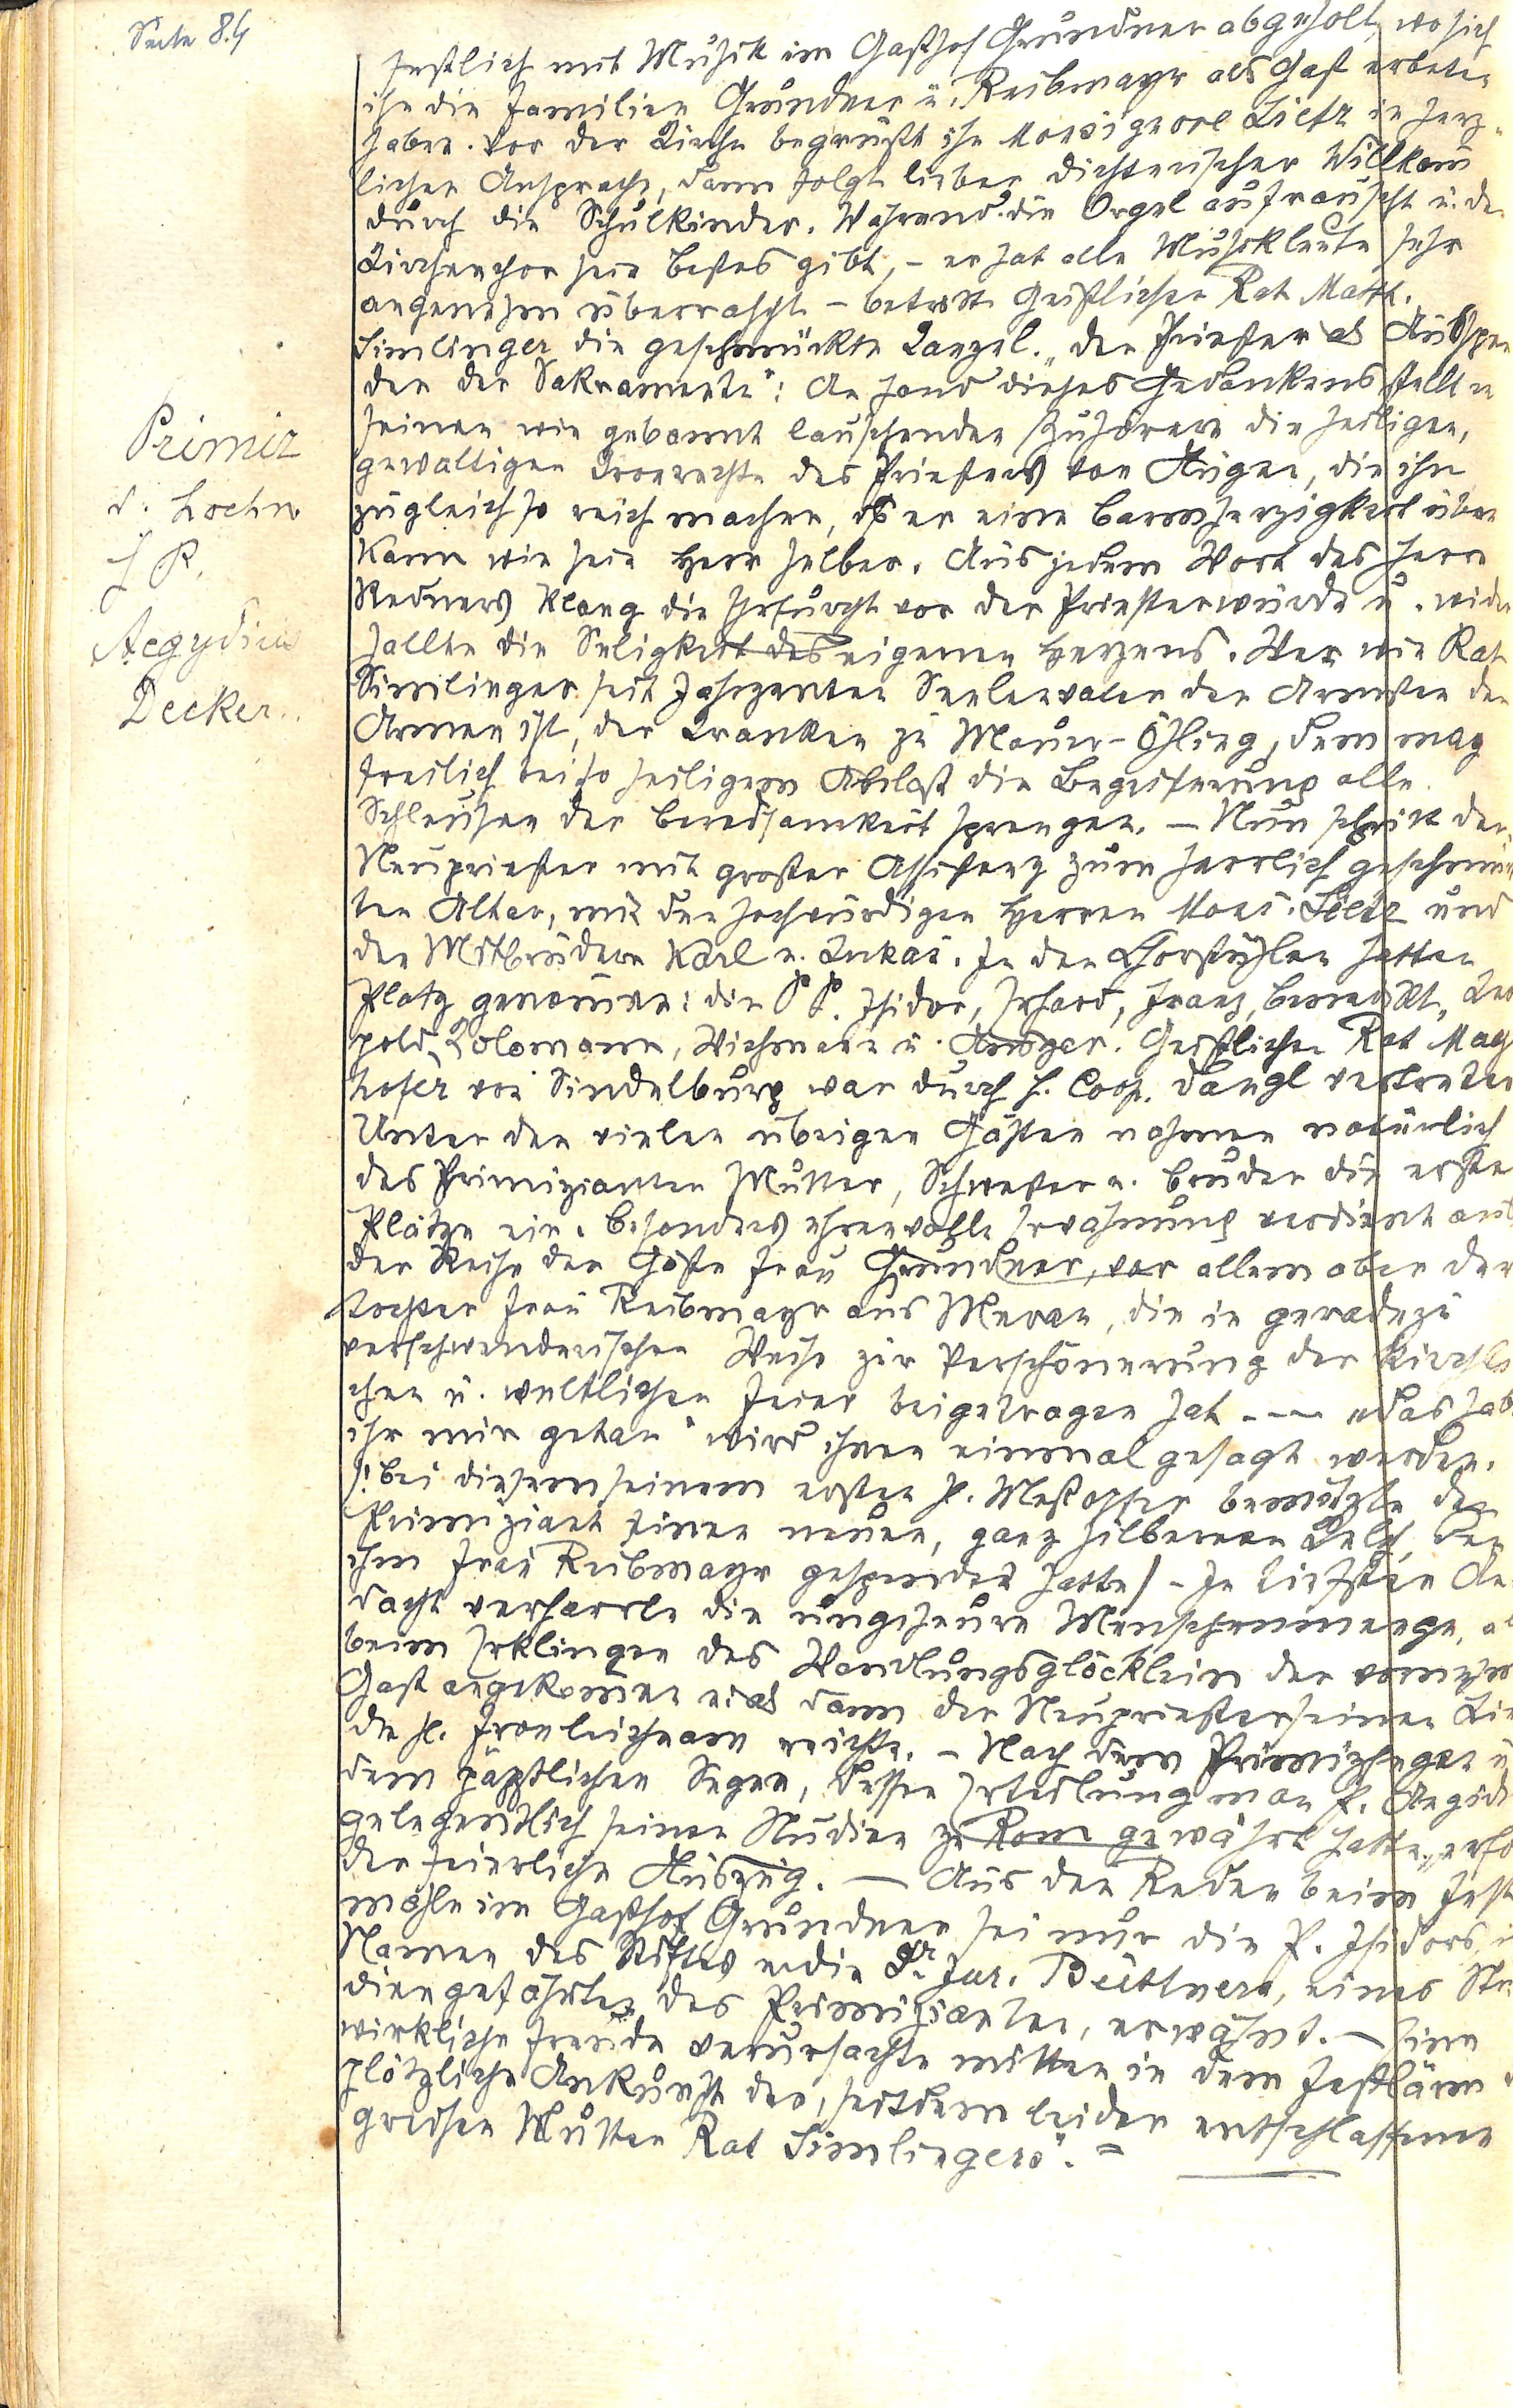 Seite 84
Primiz
d. hochw
H P.
Aegydius
Decker..
festlich mit Musik im Gasthof Grundner abgeholt, wo sich
ihn die Familien Grundner u. Reibmayr als Gast erbeten
haben. Vor der Kirche begrüßt ihn Monsignore Lietz in herz-
licher Ansprache, dann folgt lieber dichterischer Willkom̄
durch die Schulkinder. Während die Orgel aufrauscht u. der
Kirchenchor sein bestes gibt, - er hat alle Musikleute sehr
angenehm überrascht - betritt Geistlicher Rat Matth.
Simlinger die geschmückte Kanzel. "Der Priester als Ausspen
der der Sakramente": An Hand dieses Gedankens stellt er
seinen wie gebannt lauschenden Zuhörern die heiligen,
gewaltigen Kronrechte des Priesters vor Augen, die ihn
zugleich so reich machen, dß er eine Barmherzigkeit üben
kann wie sein Herr selber. Aus jedem Wort des Herrn
Redners klang die Ehrfurcht vor der Priesterwürde u. wider
hallte die Seligkeit des eigenen Herzens. Wer wie Rat
Simlinger seit Jahrzenten Seelenvater der Ärmsten der
Armen ist, der Kranken zu Mauer-Öhling, dem mag
freilich bei so heiligem Anlaß die Begeisterung alle
Schleusen der Beredsamkeit sprengen. - Nun schritt der
Neupriester mit großer Assistenz zum herrlich geschmück
ten Altar, mit den hochwürdigen Herren Mons. Lietz und
den Mitbrüdern Karl u. Lukas. In den Chorstühlen hatten
Platz genom̄en: die P P. Isidor, Erhard, Franz, Benedikt, Leo
pold, Kolomann, Wichmann u. Ansger. Geistlicher Rat May
hofer von Sindelburg war durch H. Coop. Dangl vertreten
Unter den vielen übrigen Gästen nahmen natürlich
des Primizianten Mutter, Schwester u. Bruder die ersten
Plätze ein. Besonders ehrenvolle Erwähnung verdient aus
der Reihe der Gäste Frau Grundner, vor allem aber der
Tochter Frau Reibmayr aus Meran, die in geradezu
verschwenderischer Weise zur Verschönerung der kirchli
chen u. weltlichen Feier beigetragen hat. -- "Das habt
ihr mir getan" wird ihnen einmal gesagt werden.
/: Bei diesem seinem ersten hl. Meßopfer benützte der
Primiziant einen neuen, ganz silbernen Kelch, den
ihm Frau Reibmayr gespendet hatte/ - In tiefster An
dacht verharrte die ungeheure Menschenmenge, als
beim Erklingen des Wandlungsglöcklein der
Gast angekom̄en u. als dann der Neupriester seinen Lie
den hl. Fronleichnam reichte. - Nach dem Primizsegen u
dem päpstlichen Segen, dessen Erteilung man P. Aegidi
gelegentlich seiner Studien zu Rom gewährt hatte, erfo
der feierliche Auszug. - Aus den Reden beim Fest
mahle im Gasthof Grundner sei nur die P. Isidors, i
Namen des Stiftes u. die Dr jur. Büttners, eines Stu
diengefährten des Primizianten, erwähnt. - Eine
wirkliche Freude verursachte mitten in dem Festlärm d
plötzliche Ankunft der, seitdem leider entschlafenen
greisen Mutter Rat Simlingers". =